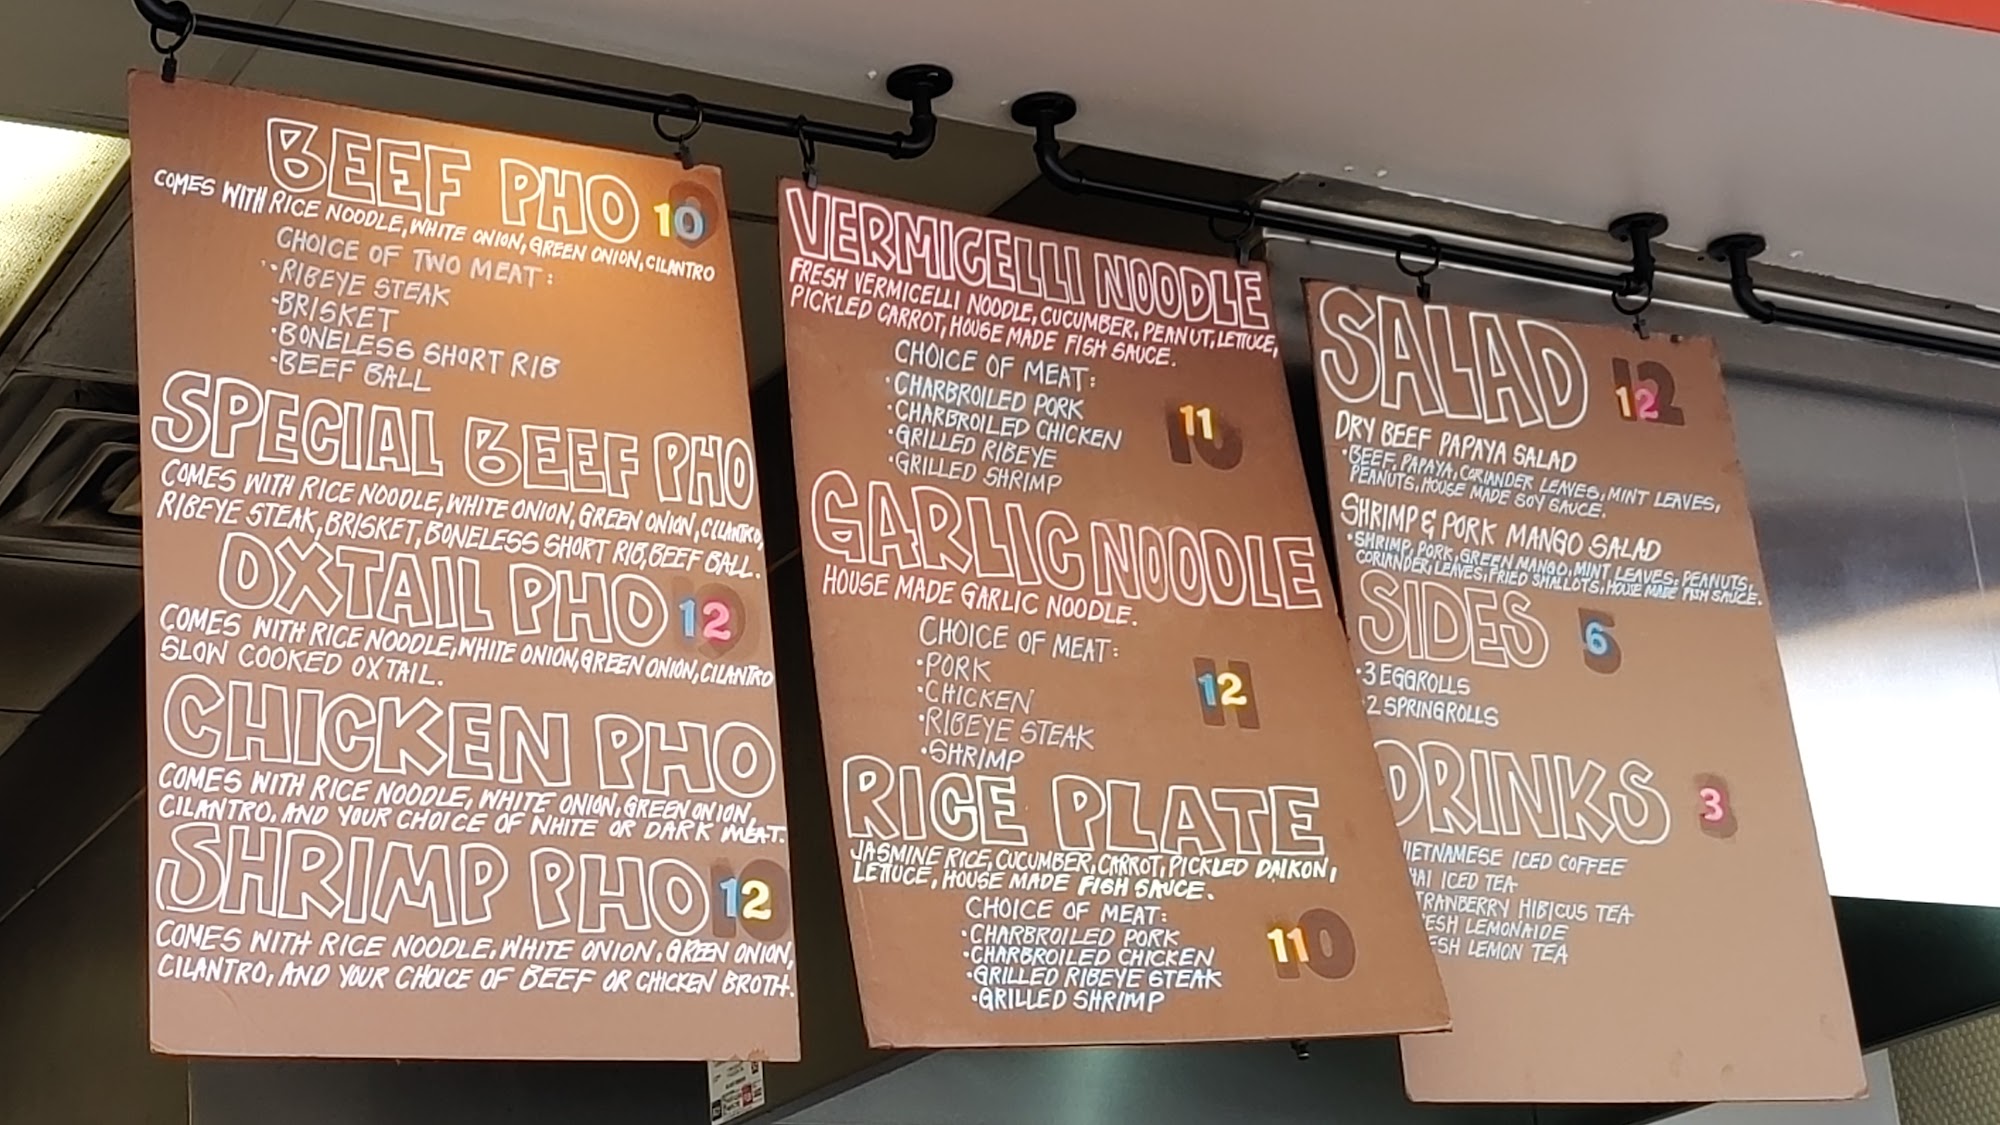 BEEF PHO 10
COMES WITH RICE NOODLE, WHITE ONION, GREEN ONION, CILANTRO
CHOICE OF TWO MEAT:
·RIBEYE STEAK
·BRISKET
·BONELESS SHORT RIB
·BEEF BALL
SPECIAL BEEF PHO
COMES WITH RICE NOODLE, WHITE ONION, GREEN ONION, CILANTRO,
RIBEYE STEAK, BRISKET, BONELESS SHORT RIB, BEEF BALL.
OXTAIL PHO 12
COMES WITH RICE NOODLE, WHITE ONION, GREEN ONION, CILANTRO
SLOW COOKED OXTAIL.
CHICKEN PHO
COMES WITH RICE NOODLE, WHITE ONION, GREEN ONION,
CILANTRO, AND YOUR CHOICE OF WHITE OR DARK MEAT.
SHRIMP PHO 12
COMES WITH RICE NOODLE, WHITE ONION, GREEN ONION,
CILANTRO, AND YOUR CHOICE OF BEEF OR CHICKEN BROTH.
VERMICELLI NOODLE
FRESH VERMICELLI NOODLE, CUCUMBER, PEANUT, LETTUCE,
PICKLED CARROT, HOUSE MADE FISH SAUCE.
CHOICE OF MEAT:
·CHARBROILED PORK
·CHARBROILED CHICKEN
·GRILLED RIBEYE
·GRILLED SHRIMP
11
GARLIC NOODLE
HOUSE MADE GARLIC NOODLE.
CHOICE OF MEAT:
·PORK
·CHICKEN
·RIBEYE STEAK
·SHRIMP
12
RICE PLATE
JASMINE RICE, CUCUMBER, CARROT, PICKLED DAIKON,
LETTUCE, HOUSE MADE FISH SAUCE.
CHOICE OF MEAT:
·CHARBROILED PORK
·CHARBROILED CHICKEN
·GRILLED RIBEYE STEAK
·GRILLED SHRIMP
11
SALAD 12
DRY BEEF PAPAYA SALAD
·BEEF, PAPAYA, CORIANDER LEAVES, MINT LEAVES,
PEANUTS, HOUSE MADE SOY SAUCE.
SHRIMP & PORK MANGO SALAD
·SHRIMP, PORK, GREEN MANGO, MINT LEAVES, PEANUTS,
CORIANDER, LEAVES, FRIED SHALLOTS, HOUSE MADE FISH SAUCE.
SIDES 6
·3 EGGROLLS
2 SPRINGROLLS
DRINKS 3
IETNAMESE ICED COFFEE
HAI ICED TEA
TRANBERRY HIBICUS TEA
ESH LEMONAIDE
ESH LEMON TEA